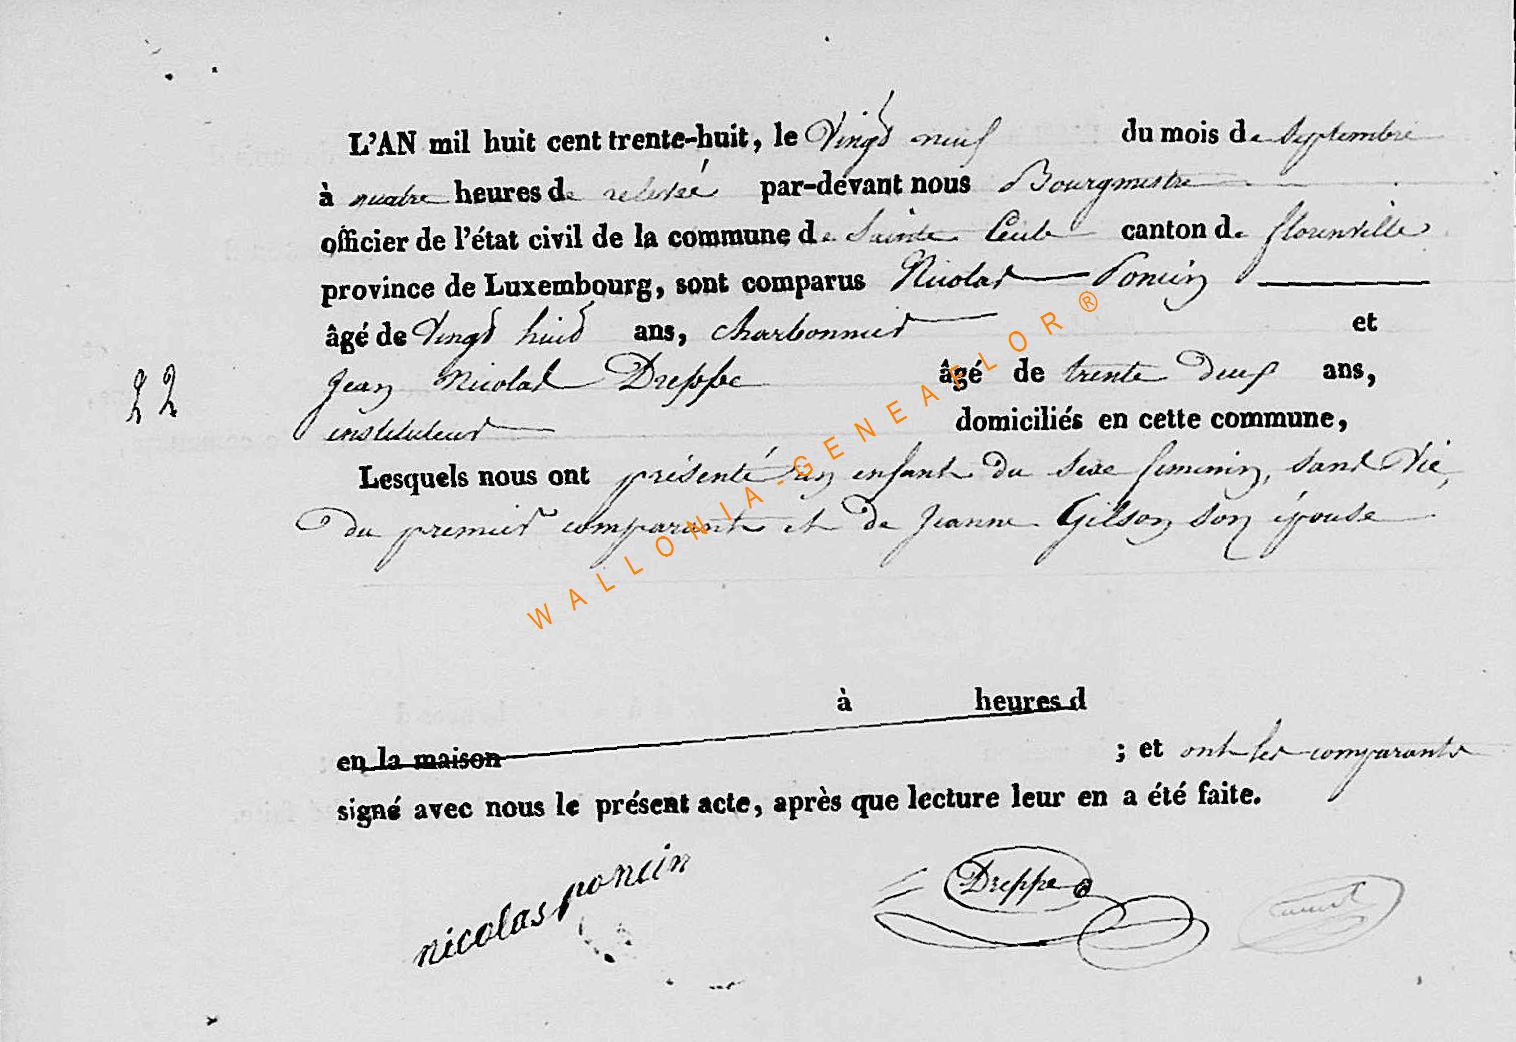 L'AN mil huit cent trente-huit, le vingt neuf du mois de Septembre
à quatre heures de relevée par-devant nous Bourgmestre
officier de l'état civil de la commune de Sainte Cécile canton de florenville
province de Luxembourg, sont comparus Nicolas Poncin
âgé de vingt huit ans, charbonnier et
22
Jean Nicolas Dreppe âgé de trente deux ans,
instituteur domiciliés en cette commune,
Lesquels nous ont présenté un enfant du sexe feminin, sans vie,
du premier comparant et de Jeanne Gilson son épouse
à heures d
en la maison ; et ont les comparants
signé avec nous le présent acte, après que lecture leur en a été faite.
nicolas poncin Dreppe
WALLONIA-GENEAFLOR®